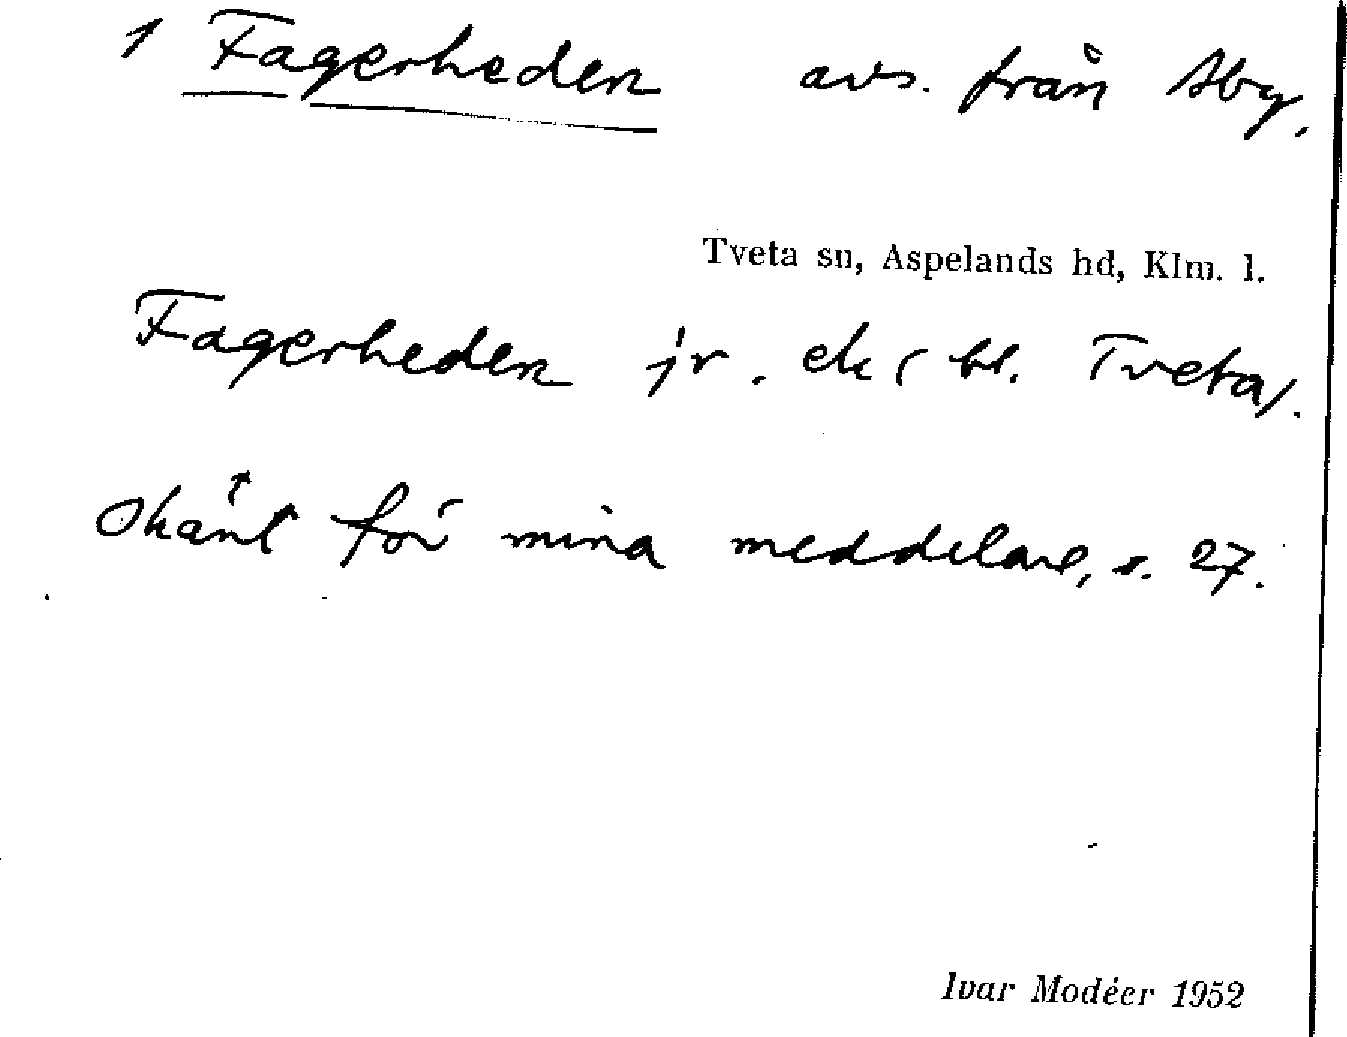 1 Fagerheden avs. från Åby.
Tveta sn, Aspelands hd, Klm. l.
Fagerheden jr. ek (bl. Tveta).
Okänt för mina meddelare, s. 27.
Ivar Modéer 1952